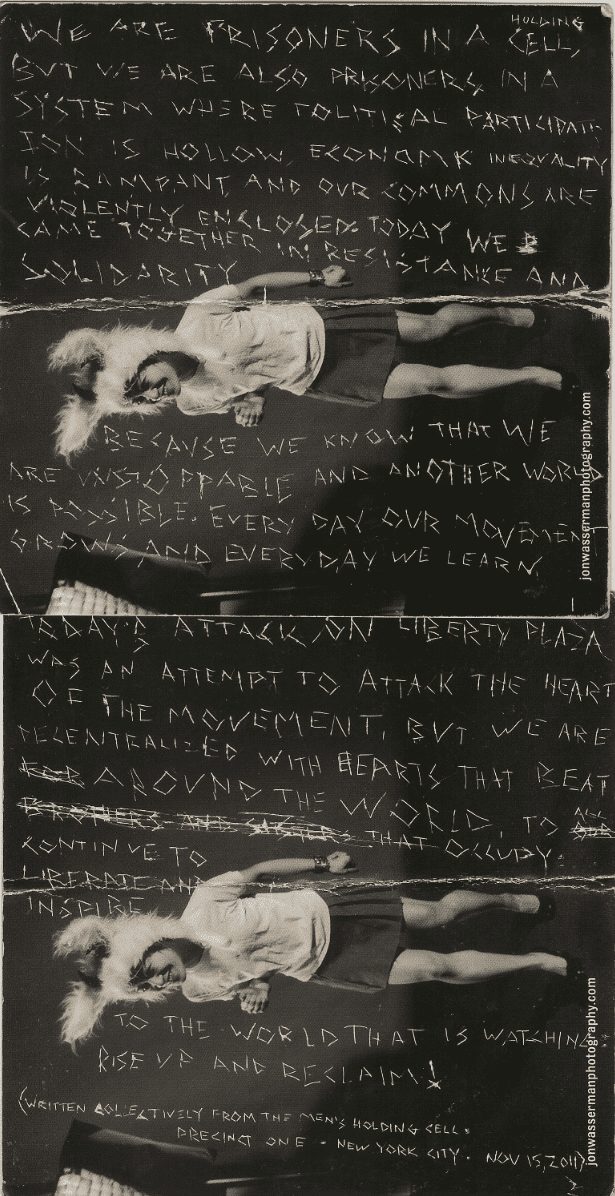 WE ARE PRISONERS IN A HOLDING CELL,
BUT WE ARE ALSO PRISONERS IN A
SYSTEM WHERE POLITICAL PARTICIPAT-
ION IS HOLLOW, ECONOMIC INEQUALITY
IS RAMPANT, AND OUR COMMONS ARE
VIOLENTLY ENCLOSED. TODAY WE
CAME TOGETHER IN RESISTANCE AND
SOLIDARITY
BECAUSE WE KNOW THAT WE
ARE UNSTOPPABLE AND ANOTHER WORLD
IS POSSIBLE. EVERY DAY OUR MOVEMENT
GROWS, AND EVERYDAY WE LEARN.
jonwassermanphotography.com
TODAY'S ATTACK ON LIBERTY PLAZA
WAS AN ATTEMPT TO ATTACK THE HEART
OF THE MOVEMENT, BUT WE ARE
DECENTRALIZED WITH HEARTS THAT BEAT
AROUND THE WORLD, TO ALL
THAT OCCUPY.
CONTINUE TO
LIBERATE AND
INSPIRE
TO THE WORLD THAT IS WATCHING:
RISE UP AND RECLAIM!
(WRITTEN COLLECTIVELY FROM THE MEN'S HOLDING CELL.
PRECINCT ONE - NEW YORK CITY. NOV 15, 2011)
jonwassermanphotography.com